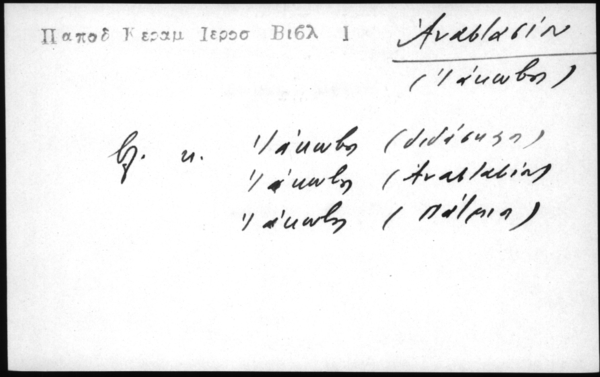 Παποδ Κεραμ Ιεροσ Βιβλ Ι
Ἀναστασίου
(Ἰάκωβος)
βλ. κ. Ἰάκωβος (διδάσκαλος)
Ἰάκωβος (Ἀναστασίου)
Ἰάκωβος (Πάτμιος)